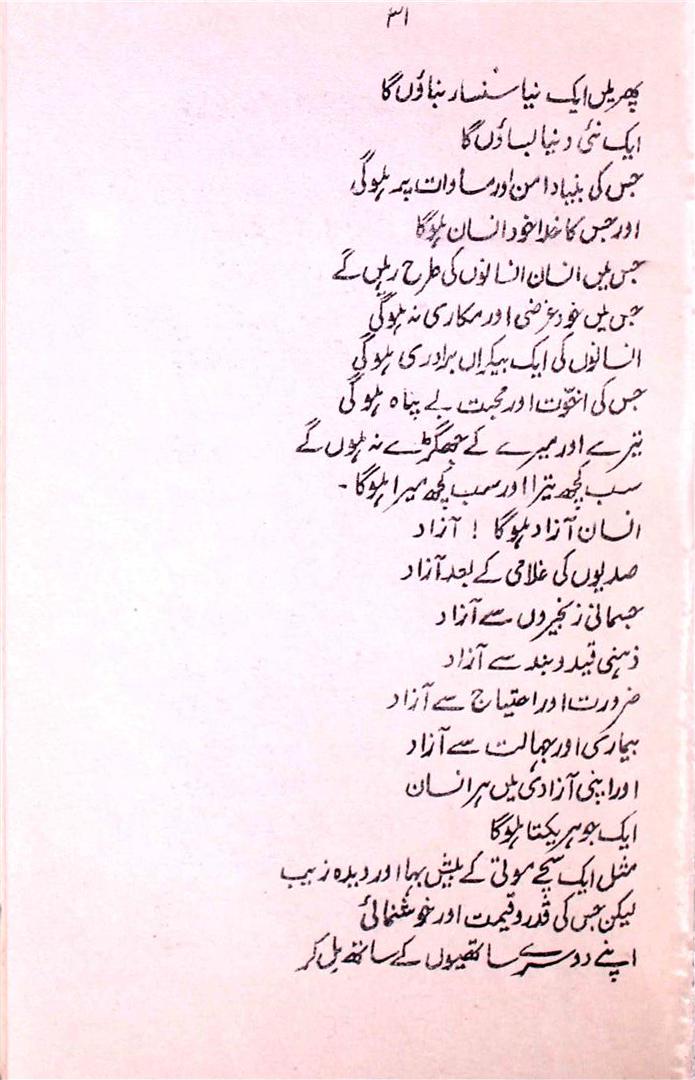 ۳۱
پھر میں ایک نیا سنسار بناؤں گا
ایک نئی دنیا بساؤں گا
جس کی بنیاد امن اور مساوات پر ہوگی
اور جس کا خدا خود انسان ہوگا
جس میں انسان انسانوں کی طرح رہیں گے
جس میں خود غرضی اور مکاری نہ ہوگی
انسانوں کی ایک بیکراں برادری ہوگی
جس کی اخوّت اور محبت بے پناہ ہوگی
تیرے اور میرے کے جھگڑے نہ ہوں گے
سب کچھ تیرا اور سب کچھ میرا ہوگا ۔
انسان آزاد ہوگا ! آزاد
صدیوں کی غلامی کے بعد آزاد
جسمانی زنجیروں سے آزاد
ذہنی قید و بند سے آزاد
ضرورت اور احتیاج سے آزاد
بیماری اور جہالت سے آزاد
اور اپنی آزادی میں ہر انسان
ایک جوہر یکتا ہوگا
مثل ایک سچے موتی کے بیش بہا اور دیدہ زیب
لیکن جس کی قدر و قیمت اور خوشنمائی
اپنے دوسرے ساتھیوں کے ساتھ مل کر